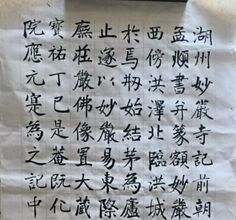 湖州妙嚴寺記前朝
孟頫書并篆額妙嚴
西傍洪澤北臨洪城
於焉剏始結茅為廬
止遂以妙嚴易東際
廡莊嚴佛像置大藏
寶祐丁巳是菴既化
院應元寔為之記中